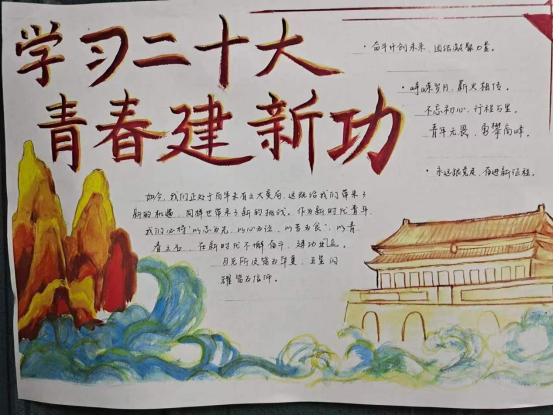 学习二十大
青春建新功
·奋斗创未来，团结凝聚力量。
·峥嵘岁月，薪火相传。
不忘初心，行程万里。
青年无畏，勇攀高峰。
·永远跟党走，奋进新征程。
如今，我们正处于百年未有之大变局，这既给我们带来了
新的机遇，同时也带来了新的挑战。作为新时代青年，
我们必将"以
青之
在新时代不懈奋斗，建功
目光所及皆为华夏，五星闪
耀皆为信仰。